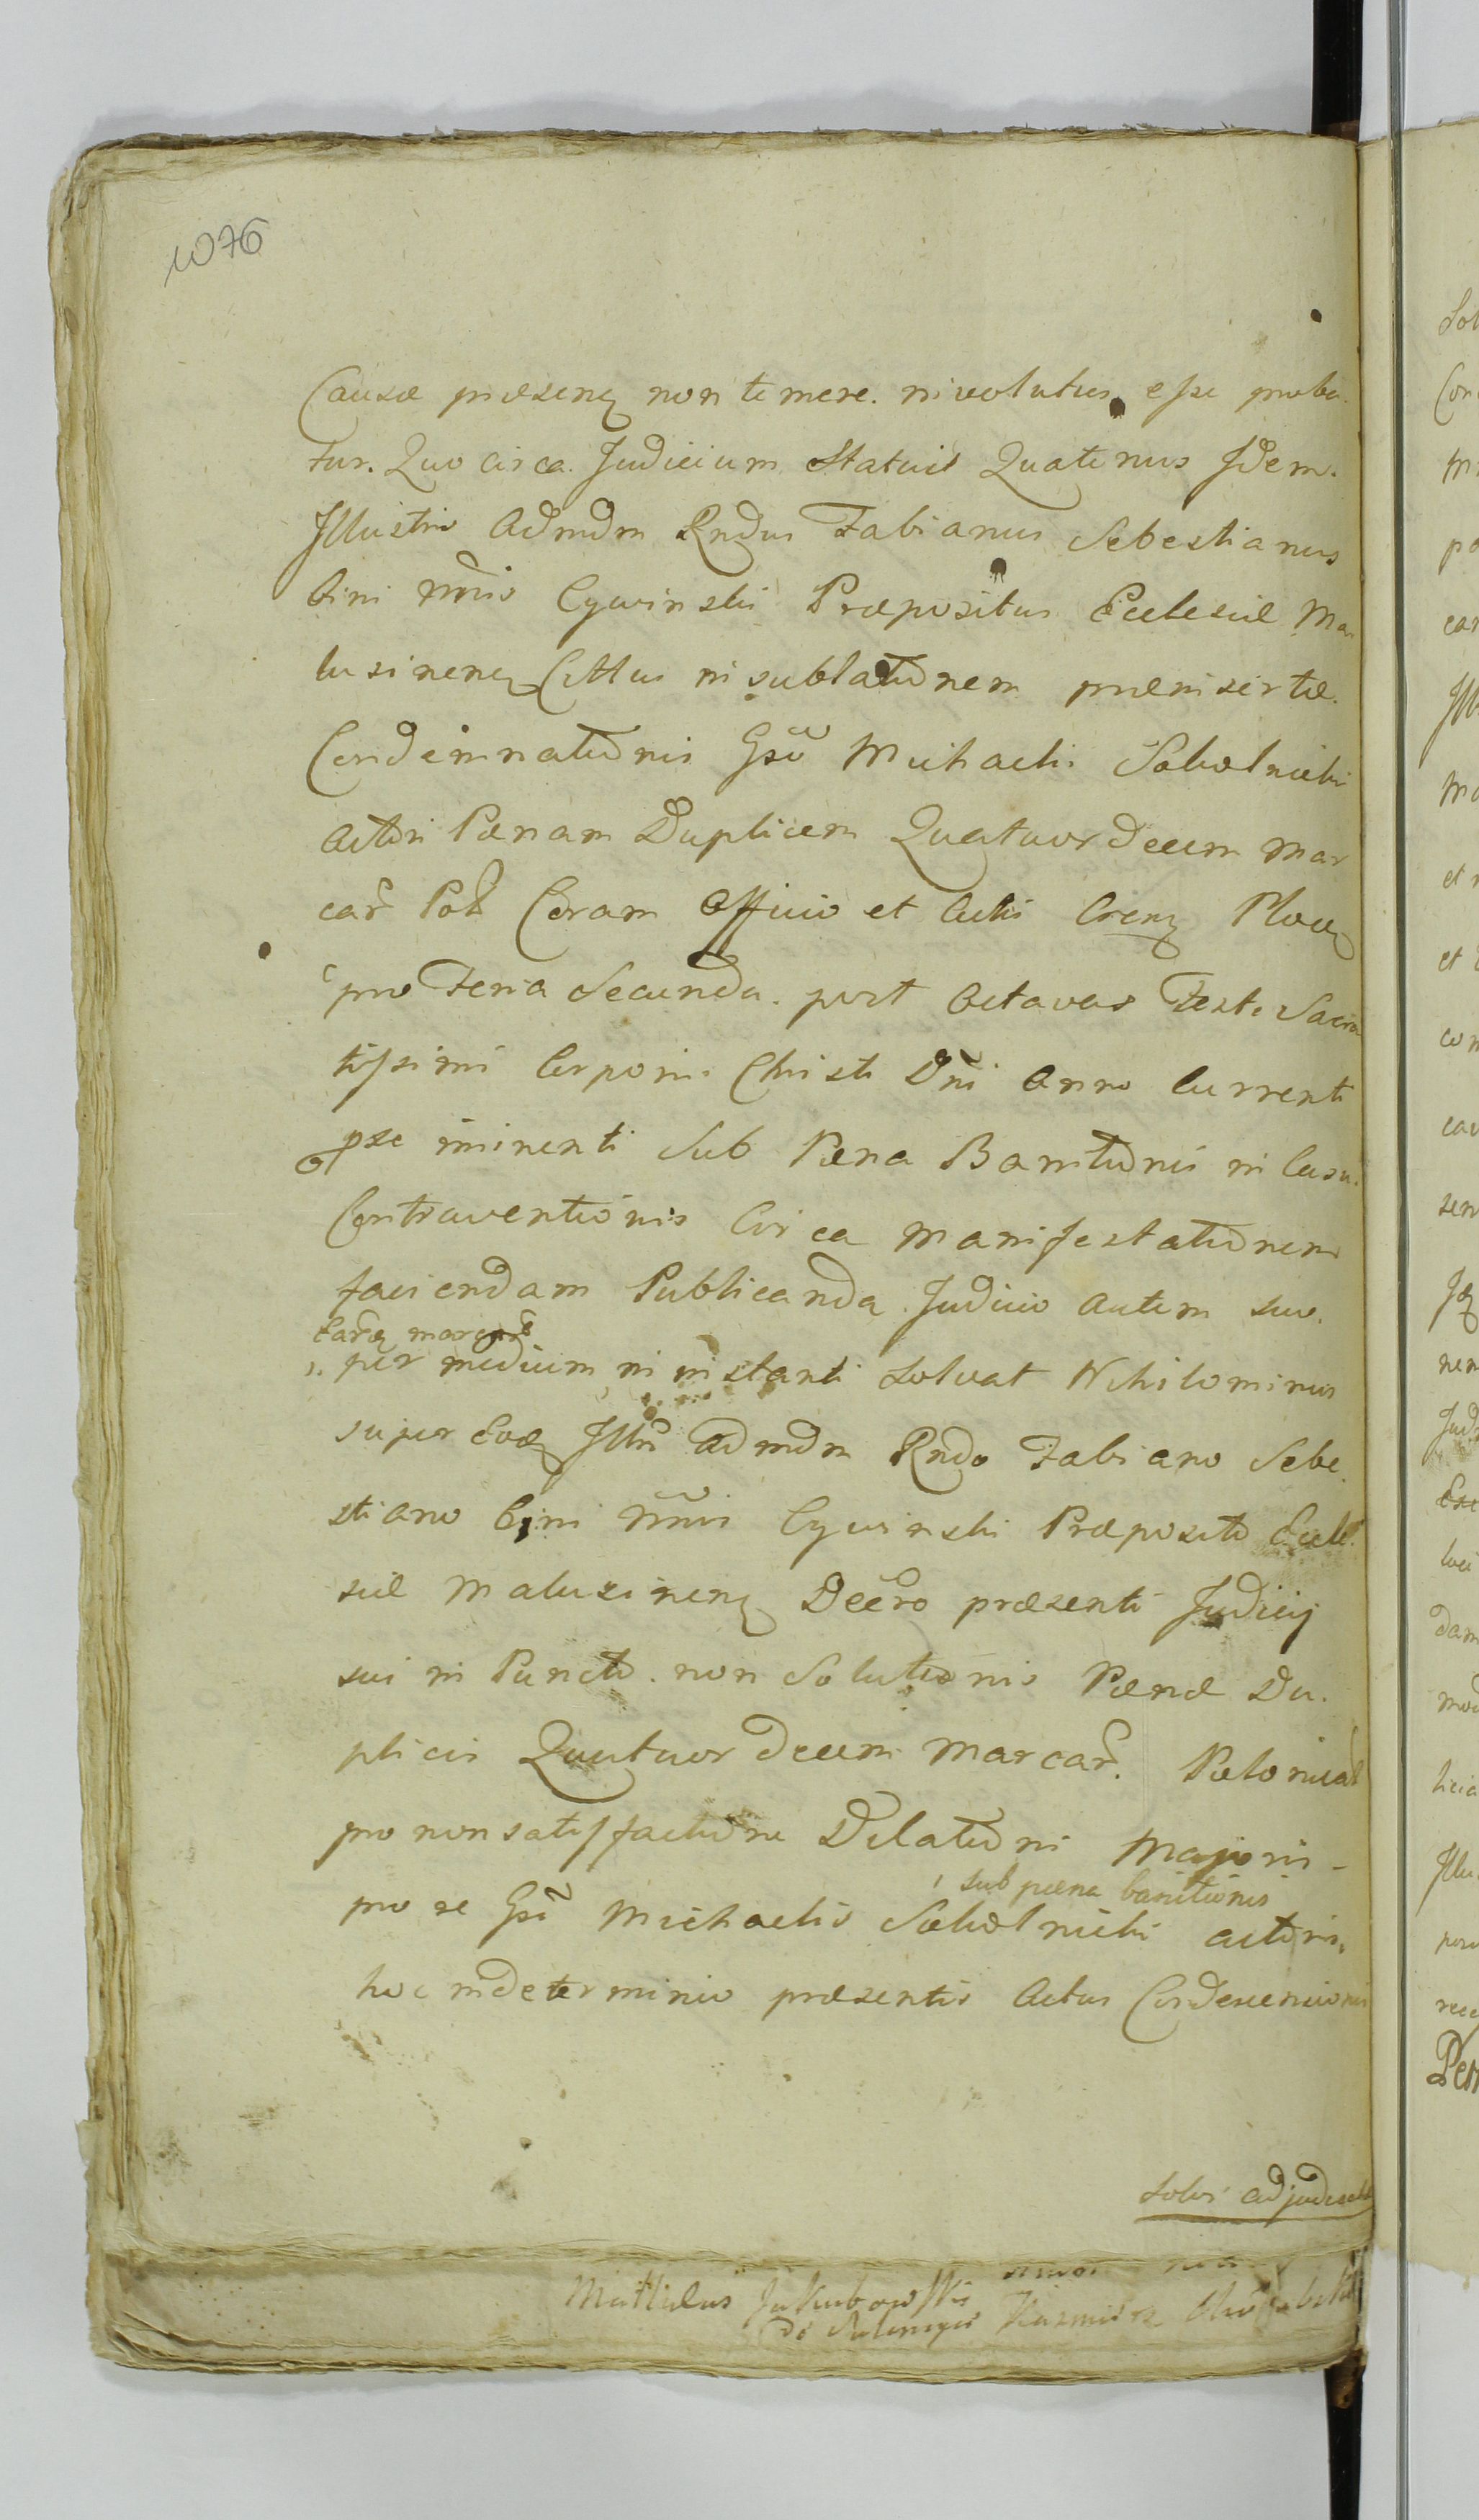 1076
Causæ præsenq non temere involutus esse proba
tur. Quo circa Judicium Statuit Quatenus Idem
Illustris Admdm Rndus Fabianus Sebestianus
bini nnis Cywinski Præpositus Ecclesiæ Ma
lusinenq Cittus in sublationem præinsertæ
Condemnationis Gso Michaeli Sokolnicki
Actori Pænam Duplicem Quatuordecem mar
car Pol Coram Officio et Actis Crenq Plocq
pro Feria Secunda post Octavas Festi Sacra
tissimi Corporis Christi Dni Anno Currenti
pse iminenti Sub Pæna Banitionis in Casu
Contraventionis Circa manifestationem
faciendam Publicanda Judicio autem suo
marcar
per medium in instanti solvat Nihilominus
super Illri Admdm Rndo Fabiano Sebe
stiano bini nnis Cywinski Præposito Eccle
siæ Malusinenq Decro præsenti Judicij
sui in Puncto non Solutionis Pænæ Du
plicis Quatuordecem Marcar. Polonical
pro non satisfactione Dilationi Majoris
sub pæna banitionis
pro se Gsi Michaelis Sokolnicki actoris,
hoc in determinio præsentis Actus Condescensionis
solvi adjudicat
Mathias Jakubowski
Kazmierz